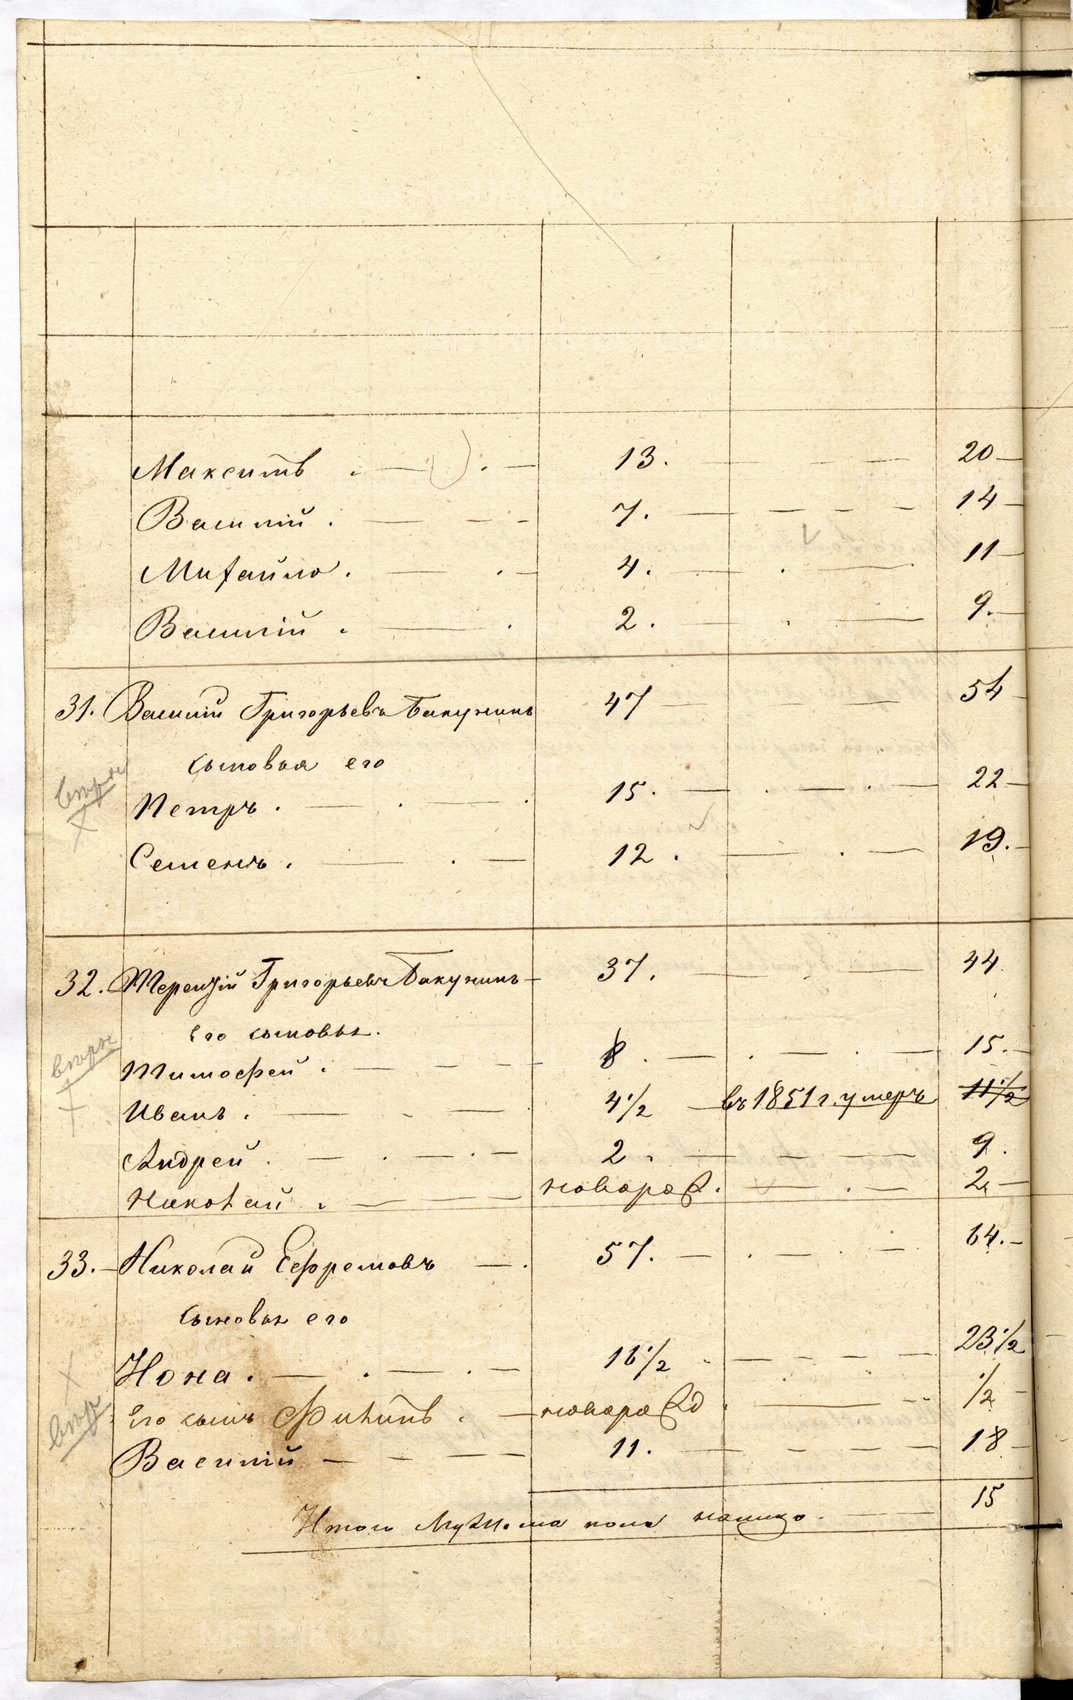 Максимъ . — . — 13. — 20 —
Василій . — — — 7. — — — — 14 —
Михайло . — . — 4. — . — 11 —
Василій . — . 2. — . — 9. —
31. Василій Григорьевъ Бакунинъ 47 — — 54 —
сыновья его
Петръ . — . — . 15. — . — . — 22 —
Семенъ . — . — 12 . — . — 19. —
32. Терентій Григорьевъ Бакунинъ — 37. — . — 44
Его сыновья.
Тимофей . — — — 8 . — . — . — 15. —
Иванъ . — - — 4½ — въ 1851 г. умеръ 11½
Андрей . — . — . — 2 . — — — 9 .
Николай . — новорож. — . — 2 —
33. — Николай Ефремовъ — . 57. — . — . — 64. —
сыновья его
Иона . — . — . — 16½ . — — — . 23½
Его сынъ Филипъ . — новорожд . — — ½ —
Василій — — — 11. — — — — 18 —
Итого Мужеска пола налицо . — 15